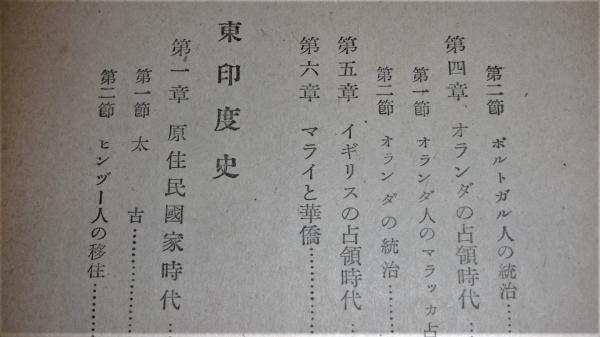 第二節 ポルトガル人の統治……
第四章 オランダの占領時代…
第一節 オランダ人のマラッカ占
第二節 オランダの統治……
第五章 イギリスの占領時代…
第六章 マライと華僑…………
東印度史
第一章 原住民國家時代…
第一節 太古………………
第二節 ヒンヅー人の移住……